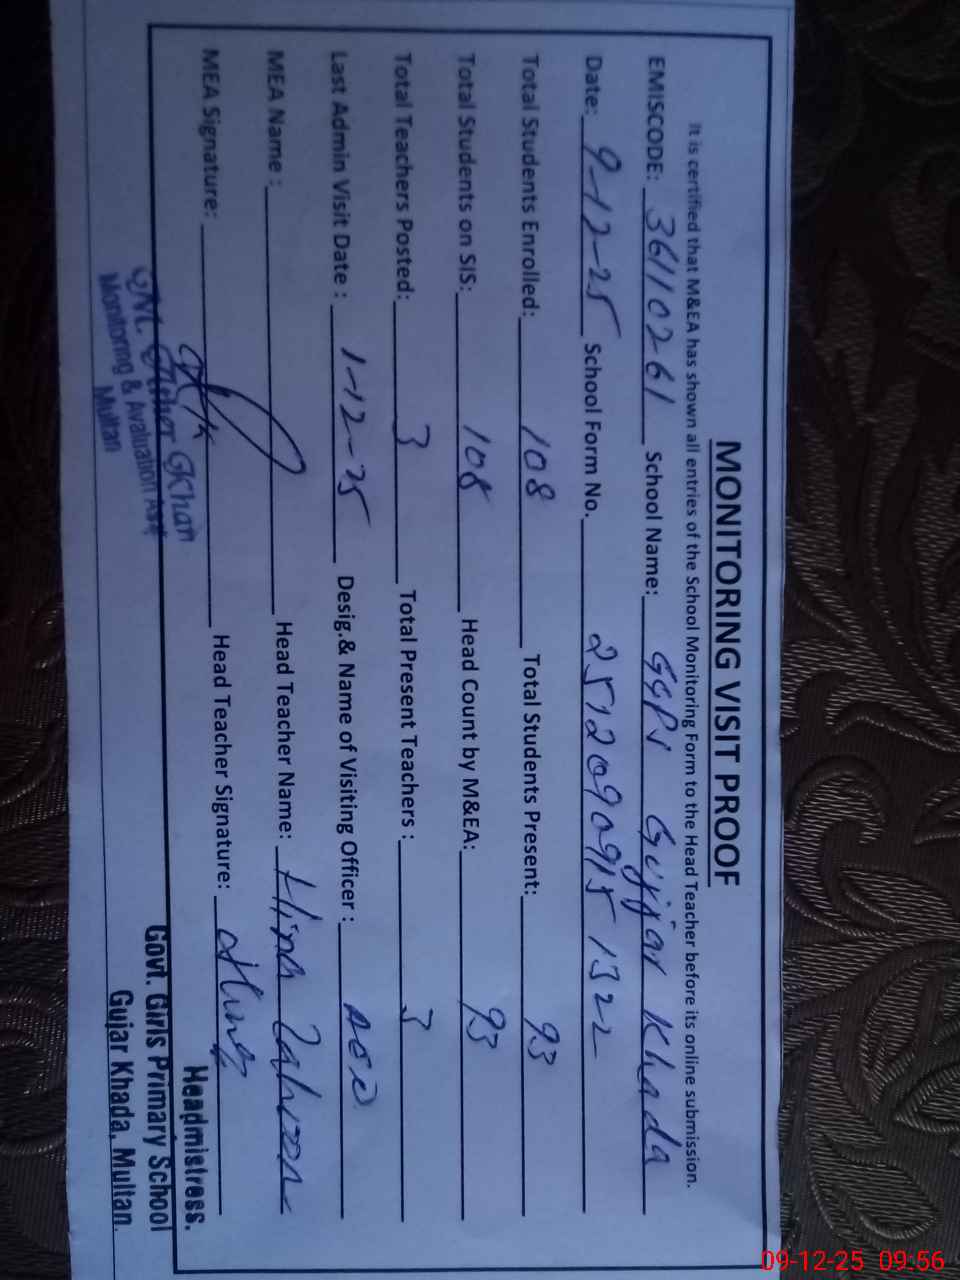 MONITORING VISIT PROOF
It is certified that M&EA has shown all entries of the School Monitoring Form to the Head Teacher before its online submission.
EMISCODE: 36110261 School Name: GGPS Gujjar Khada
Date: 9-12-25 School Form No. 25120909151322
Total Students Enrolled: 108 Total Students Present: 93
Total Students on SIS: 108 Head Count by M&EA: 93
Total Teachers Posted: 3 Total Present Teachers : 3
Last Admin Visit Date : 1-12-25 Desig.& Name of Visiting Officer : AEO
MEA Name : Head Teacher Name: Hina
MEA Signature: Head Teacher Signature:
Khan
Monitoring & Avaluation Asst
Multan
Headmistress.
Govt. Girls Primary School
Gujar Khada, Multan.
09-12-25 09:56